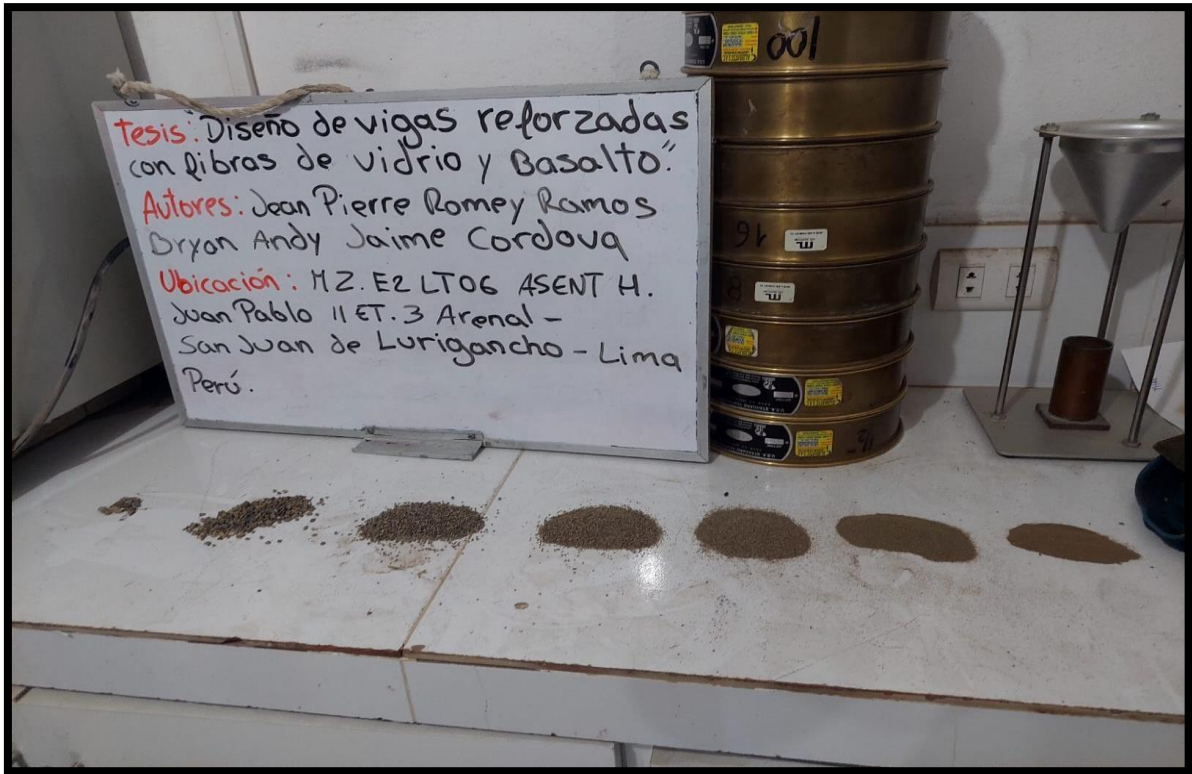 Tesis: "Diseño de vigas reforzadas
con fibras de vidrio y Basalto."
Autores: Jean Pierre Romey Ramos
Bryan Andy Jaime Cordova
Ubicación: MZ. E2 LT06 ASENT H.
Juan Pablo II ET. 3 Arenal -
San Juan de Lurigancho - Lima
Perú.
100
16
8